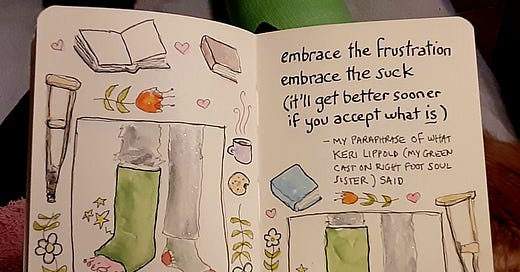 embrace the frustration
embrace the suck
(it'll get better sooner
if you accept what is)
- MY PARAPHRASE OF WHAT
KERI LIPPOLD (MY GREEN
CAST ON RIGHT FOOT SOUL
SISTER) SAID